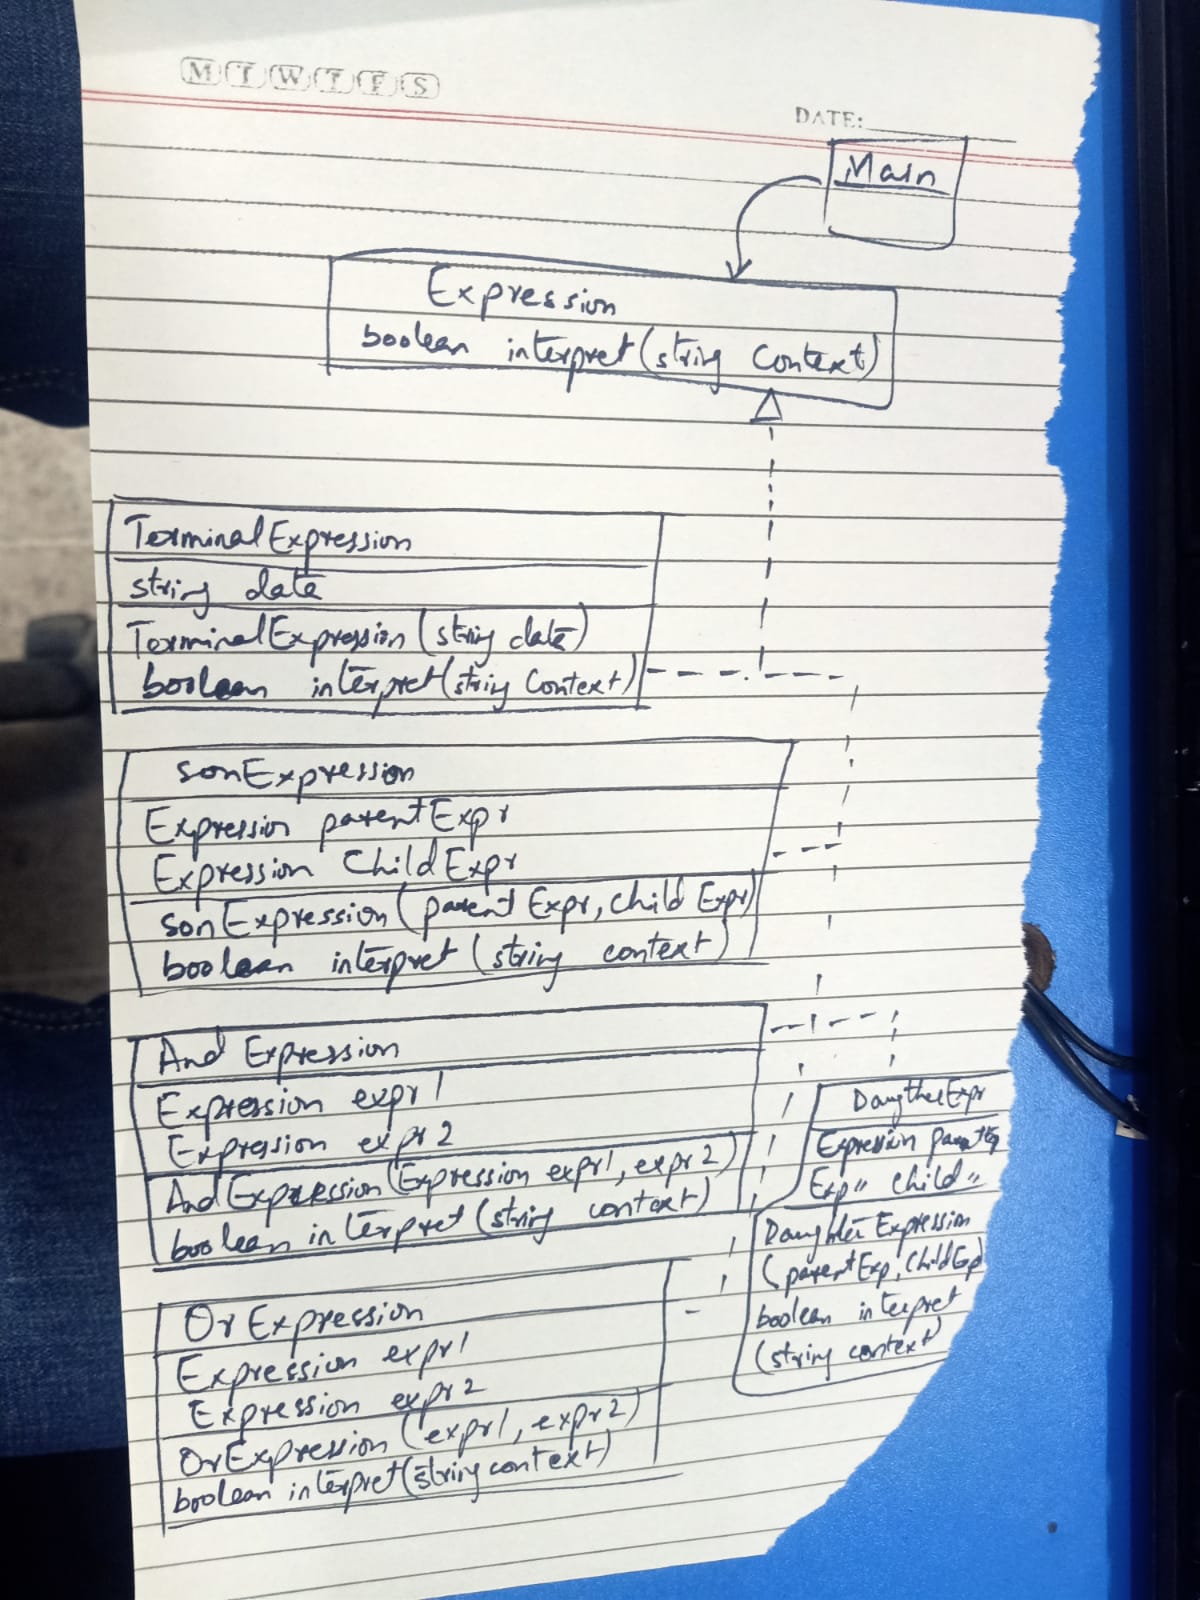 M T W T F S
DATE:
Main
Expression
boolean interpret(string Context)
TerminalExpression
string data
TerminalExpression(string data)
boolean interpret(string Context)
sonExpression
Expression parentExpr
Expression ChildExpr
sonExpression(parent Expr, child Expr)
boolean interpret (string context)
And Expression
Expression expr1
Expression expr2
And Expression(Expression expr1, expr2)
boolean interpret (string context)
DaugtherExpr
Expression
Exp" child "
Daughter Expression
(parentExp, ChildExp)
boolean interpret
(string context)
Or Expression
Expression expr1
Expression expr2
OrExpression (expr1, expr2)
boolean interpret(string context)